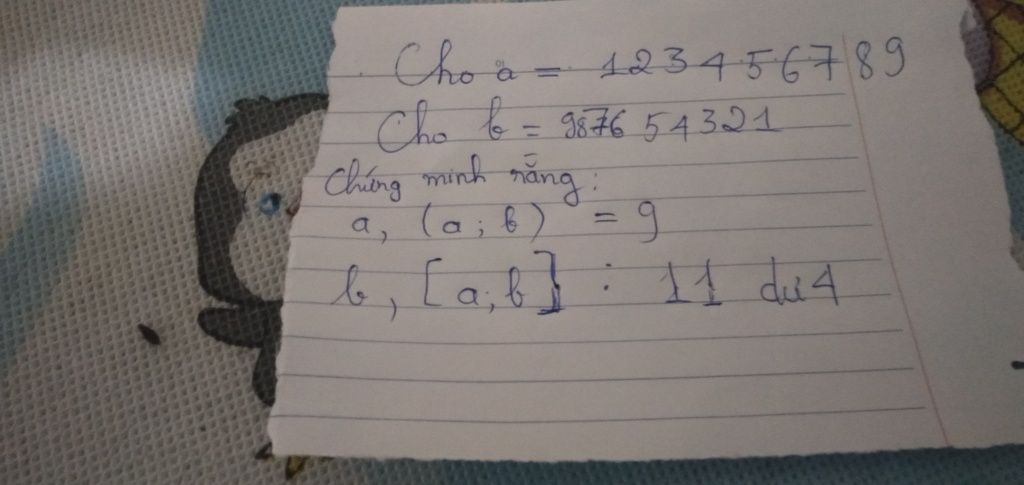 Cho a = 123456789
Cho b = 987654321
Chứng minh rằng:
a, (a; b) = 9
b, [a; b] : 11 dư 4